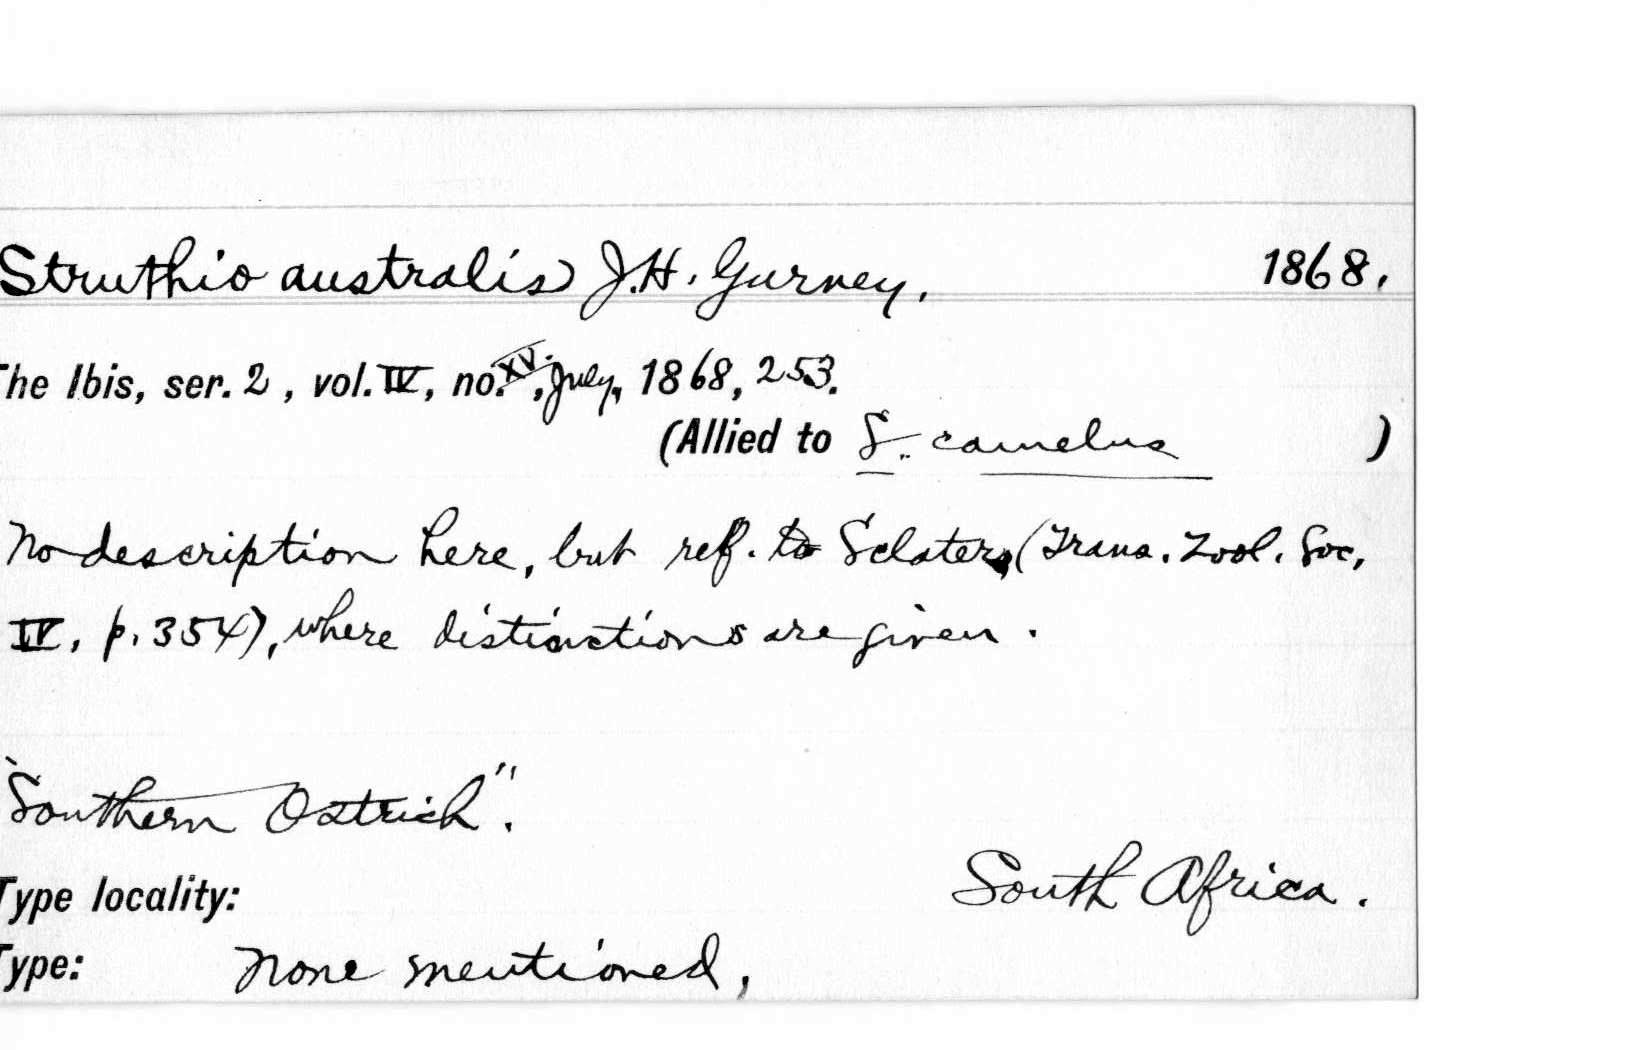 Struthio australis J.H. Gurney, 1868.
The Ibis, ser. 2, vol. IV, no. XV., July, 1868, 253.
(Allied to S. camelus )
No description here, but ref. to Sclater, (Trans. Zool. Soc,
IV, p. 354), where distinctions are given.
"Southern Ostrich".
Type locality: South Africa.
Type: None mentioned,